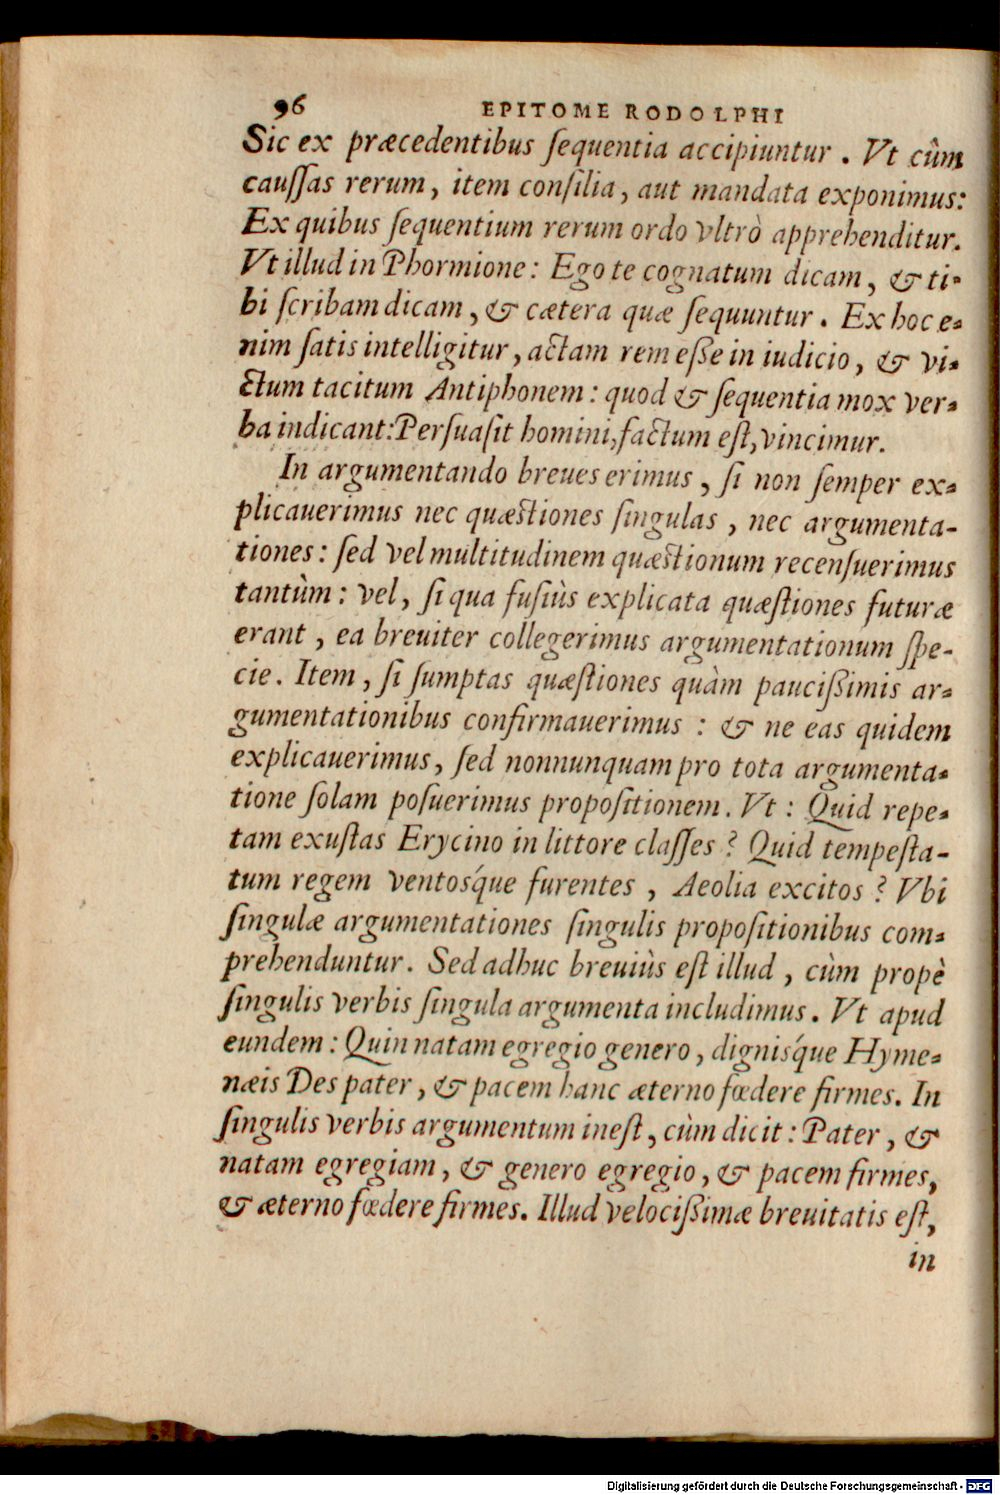 96 EPITOME RODOLPHI
Sic ex præcedentibus ſequentia accipiuntur. Vt cùm
cauſſas rerum, item conſilia, aut mandata exponimus:
Ex quibus ſequentium rerum ordo vltrò apprehenditur.
Vt illud in Phormione: Ego te cognatum dicam, & ti-
bi ſcribam dicam, & cætera quæ ſequuntur. Ex hoc e-
nim ſatis intelligitur, actam rem eſſe in iudicio, & vi-
ctum tacitum Antiphonem: quod & ſequentia mox ver-
ba indicant: Perſuaſit homini, factum eſt, vincimur.
In argumentando breues erimus, ſi non ſemper ex-
plicauerimus nec quæſtiones ſingulas, nec argumenta-
tiones: ſed vel multitudinem quæſtionum recenſuerimus
tantùm: vel, ſi qua fuſiùs explicata quæſtiones futuræ
erant, ea breuiter collegerimus argumentationum ſpe-
cie. Item, ſi ſumptas quæſtiones quàm pauciſſimis ar-
gumentationibus confirmauerimus: & ne eas quidem
explicauerimus, ſed nonnunquam pro tota argumenta-
tione ſolam poſuerimus propoſitionem. Vt: Quid repe-
tam exuſtas Erycino in littore claſſes? Quid tempeſta-
tum regem ventosq́ue furentes, Aeolia excitos? Vbi
ſingulæ argumentationes ſingulis propoſitionibus com-
prehenduntur. Sed adhuc breuiùs eſt illud, cùm propè
ſingulis verbis ſingula argumenta includimus. Vt apud
eundem: Quin natam egregio genero, dignisq́ue Hyme-
næis Des pater, & pacem hanc æterno fœdere firmes. In
ſingulis verbis argumentum ineſt, cùm dicit: Pater, &
natam egregiam, & genero egregio, & pacem firmes,
& æterno fœdere firmes. Illud velociſſimæ breuitatis eſt,
in
Digitalisierung gefördert durch die Deutsche Forschungsgemeinschaft - DFG